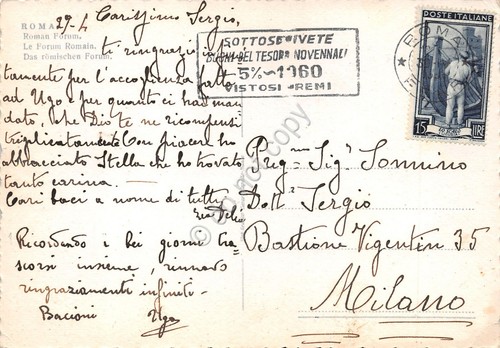 ROMA
Roman Forum.
Le Forum Romain.
Das römischen Forum.
29-4
Carissimo Sergio,
ti ringrazio
tamente per l'accoglienza fatta
ad Ugo e per quanto ci hai man
dato, che Dio te ne ricompensi
triplicatamente. Con piacere ho
abbracciato Stella che ho trovato
tanto carina. —
Cari baci a nome di tutti
zia Delia
Ricordando i bei giorni tra=
scorsi insieme, rinnovo
ringraziamenti infiniti -
Bacioni Ugo
SOTTOSCRIVETE
BUONI DEL TESORO NOVENNALI
5% - 1960
VISTOSI PREMI
ROMA
POSTE ITALIANE
15 LIRE
Preg.mo Sig. Sonnino
Dott. Sergio
Bastione Vigentin 35
Milano